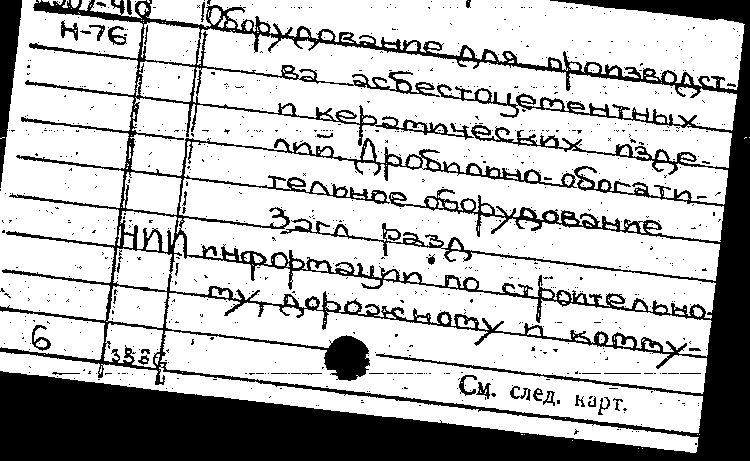 Н-76
Оборудование для производст-
ва асбестоцементных
и керамических изде-
лий. Дробильно-обогати-
тельное оборудование
Загл. разд.
НИИ информации по строительно-
му, дорожному и комму-
6
См. след. карт.